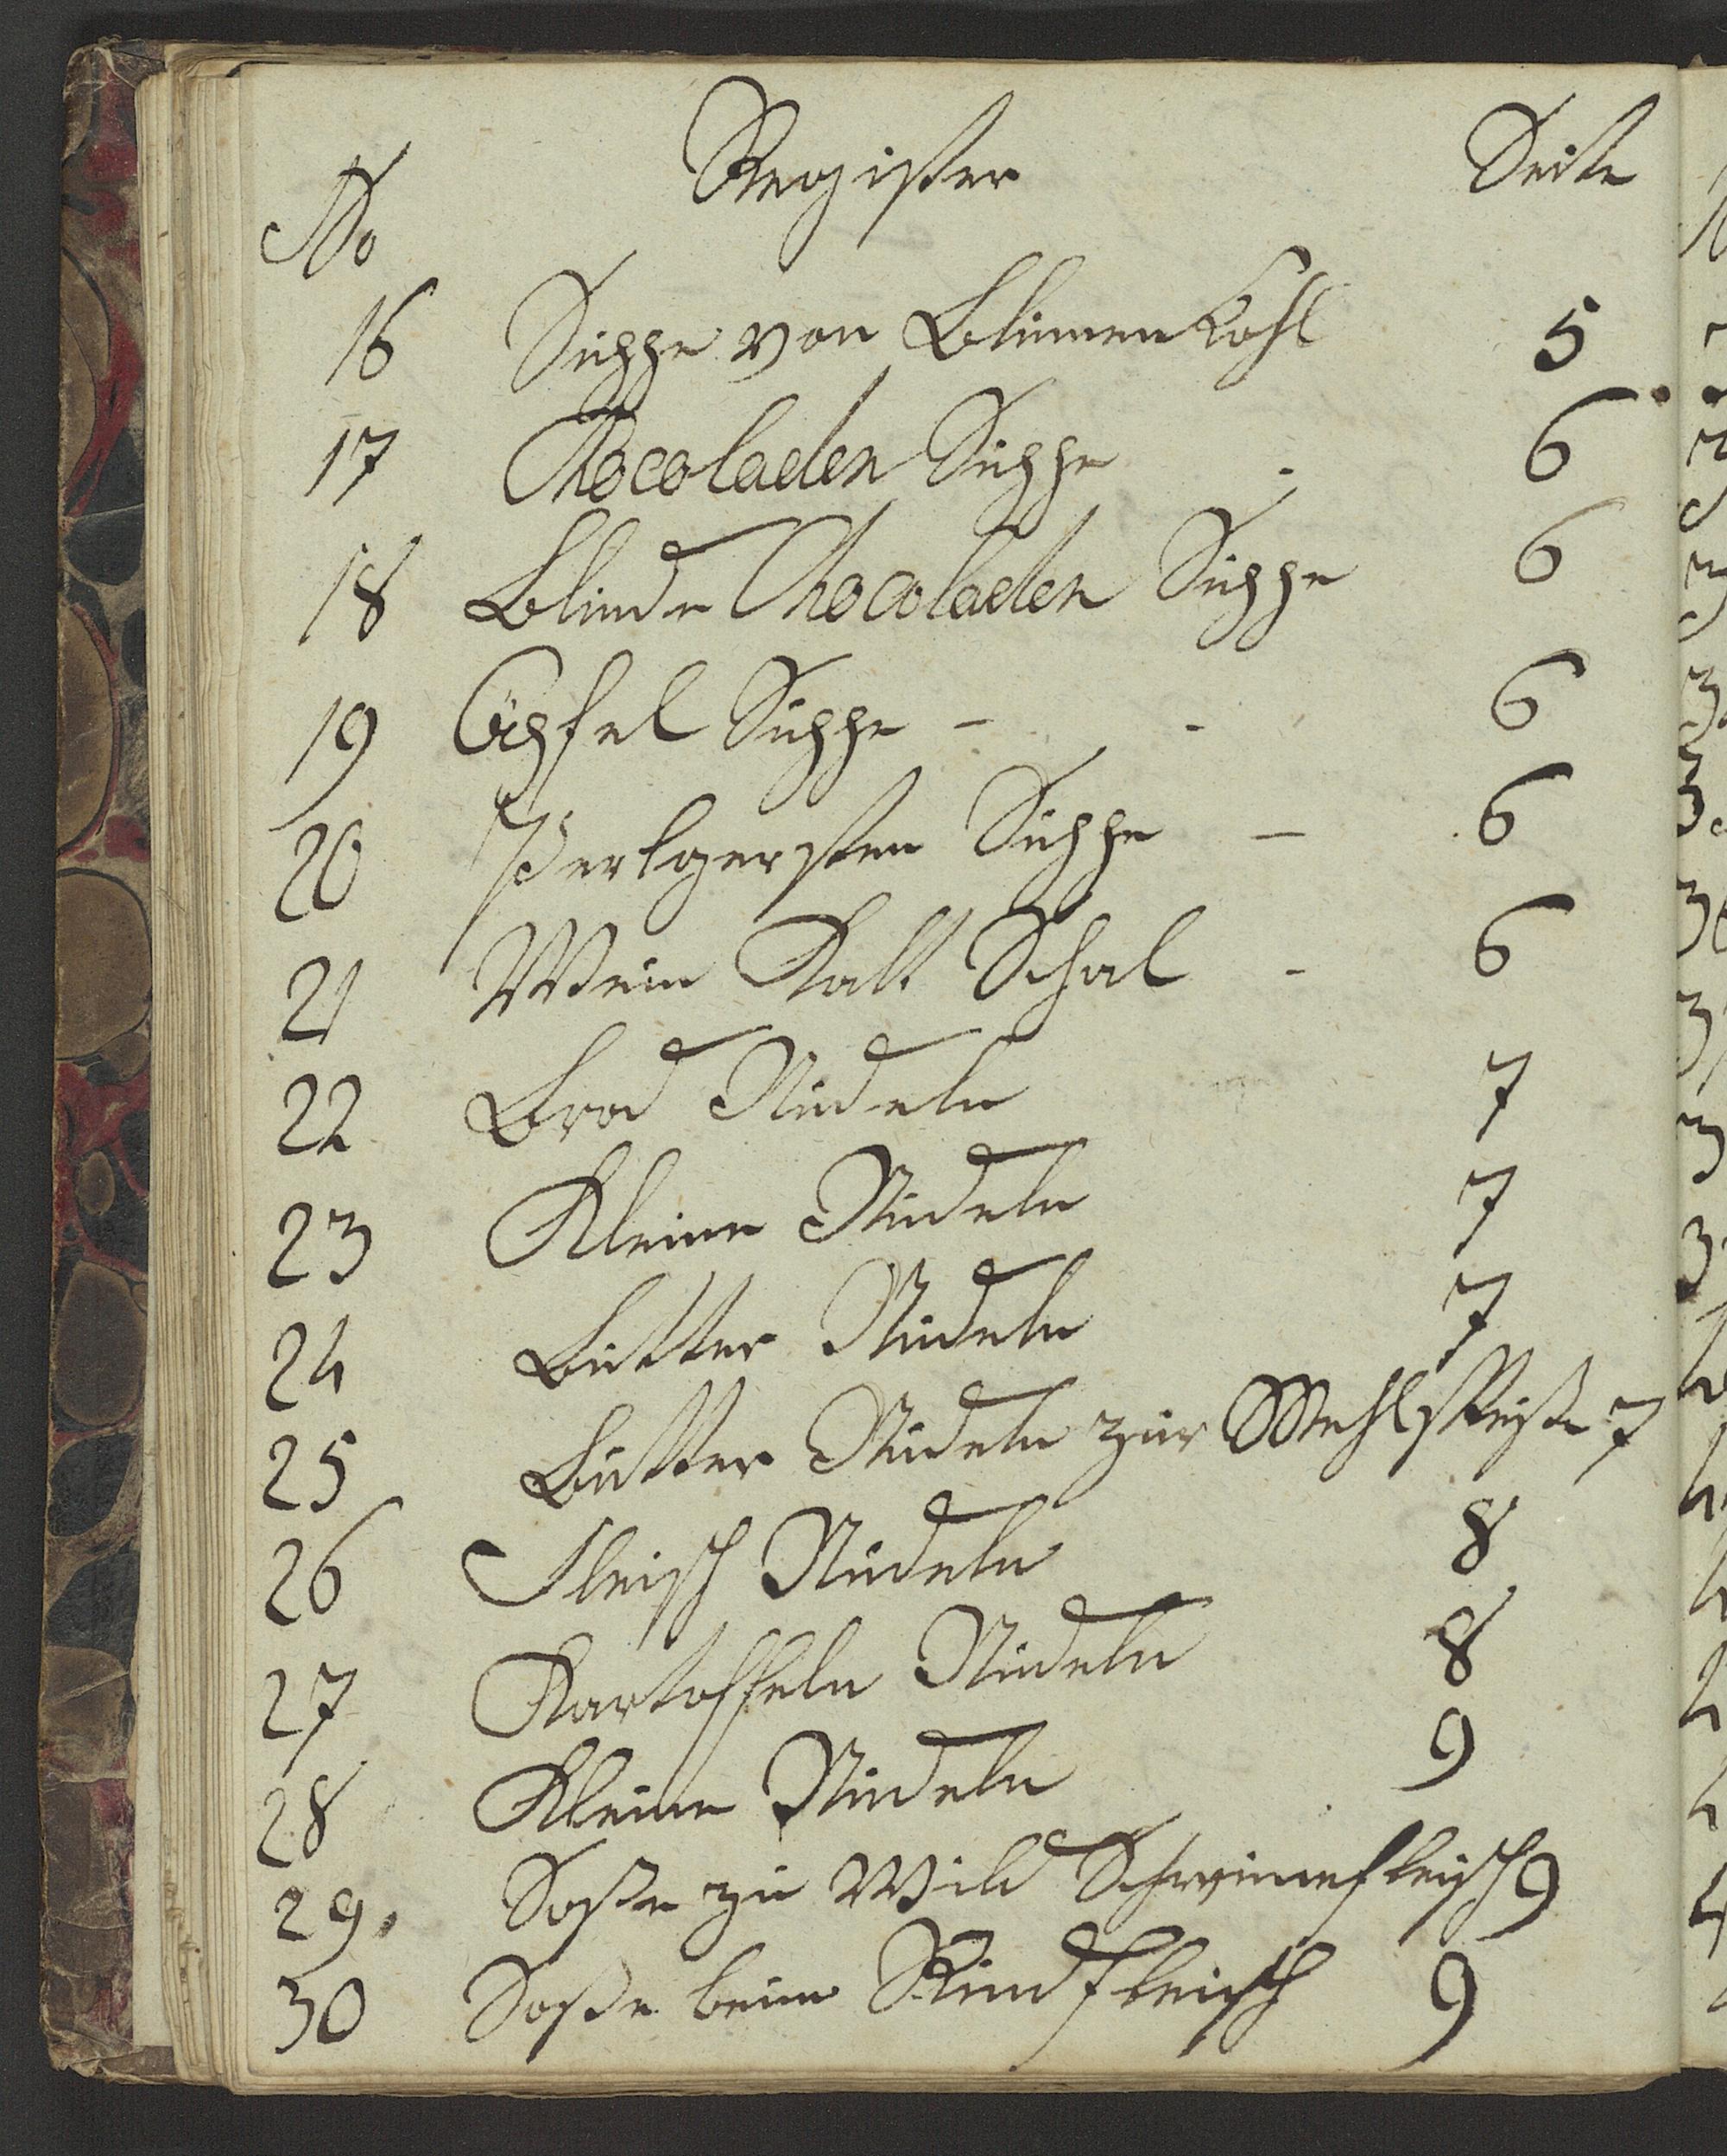 No Register Seite
16 Suppe von Blumen Kohl 5
17 Chocoladen Suppe - 6
18 Blinde Chocoladen Suppe 6
19 Äpfel Suppe - - 6
20 Perlgersten Suppe - 6
21 Wein Kalt Schal - 6
22 Brod Nudeln 7
23 Kleine Nudeln 7
24 Butter Nudeln 7
25 Butter Nudeln zur Mehlspeise 7
26 Fleisch Nudeln 8
27 Kartoffeln Nudeln 8
28 Kleine Nudeln 9
29. Soße zu Wild Schweinefleisch 9
30 Soße beim Rindfleisch 9